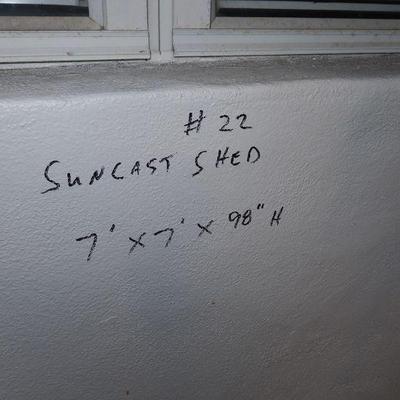 # 22
SUNCAST SHED
7' x 7' x 98" H